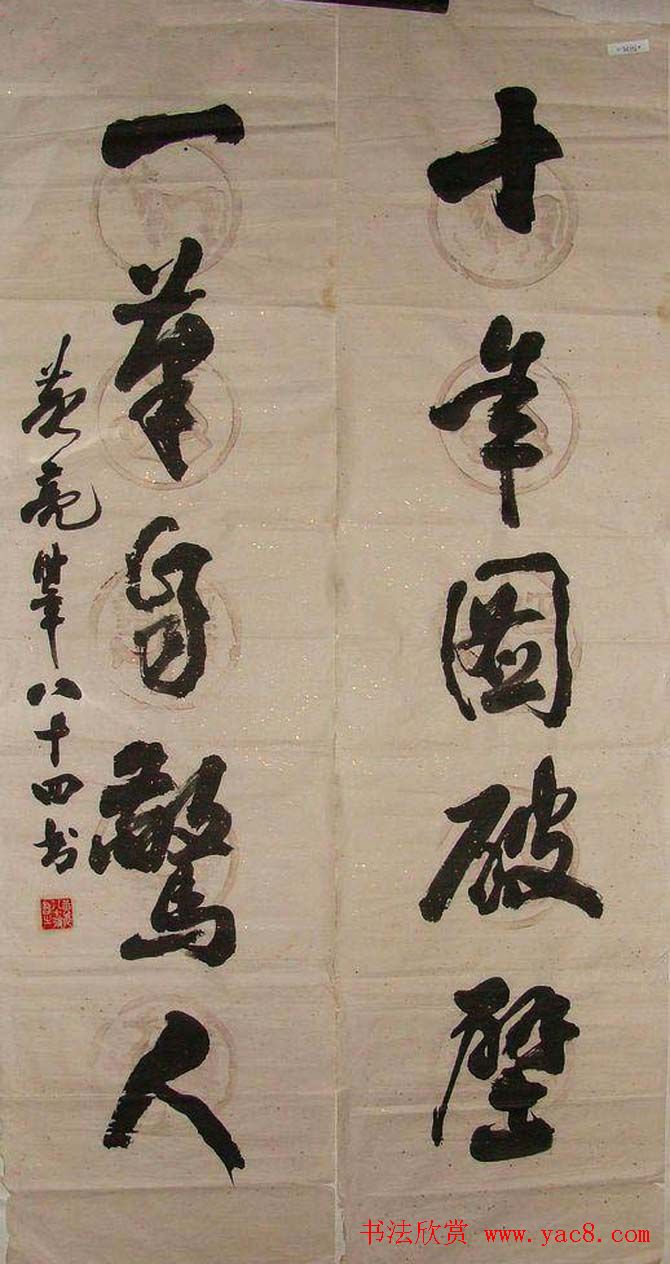 十年圖破壁
一筆自驚人
黄亮时年八十四书
书法欣赏 www.yac8.com